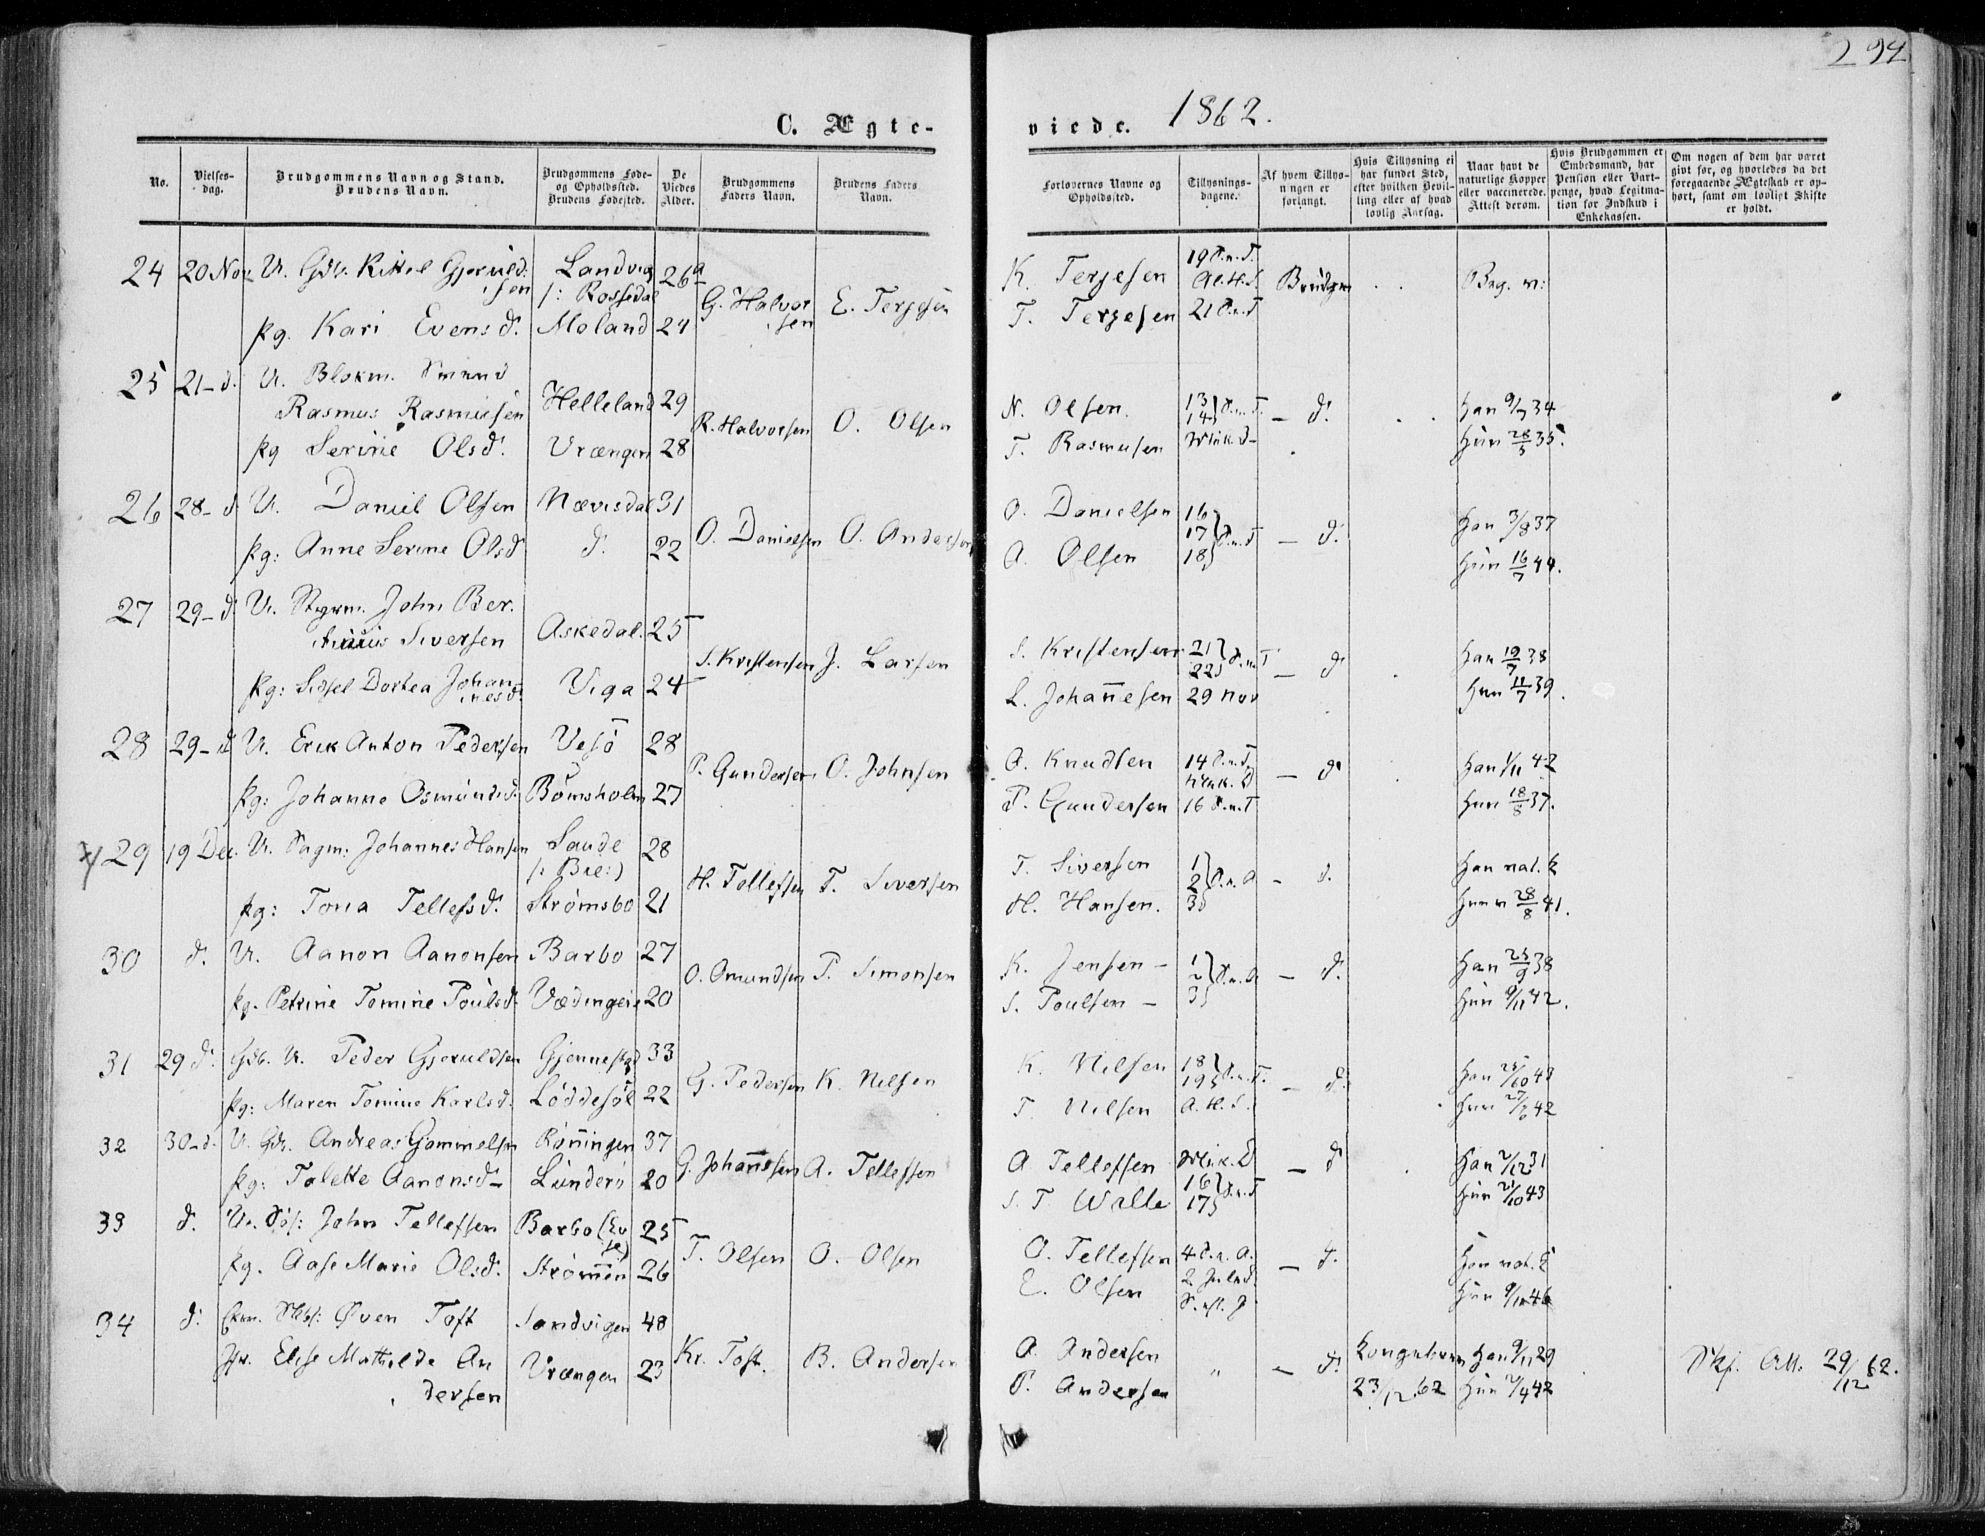 294
1862.
C. Ægte-
viede.
No.
Vielses-
dag.
Brudgommens Navn og Stand.
Brudens Navn.
Brudgommens Føde-
og Opholdssted.
Brudens Fødested.
De
Viedes
Alder.
Brudgommens
Faders Navn.
Brudens Faders
Navn.
Forlovernes Navne og
Opholdssted.
Tillysnings-
dagene.
Af hvem Tillys-
ningen er
forlangt.
Hvis Tillysning ei
har fundet Sted,
efter hvilken Bevil-
ling eller af hvad
lovlig Aarsag.
Naar havt de
naturlige Kopper
eller vaccinerede.
Attest derom.
Hvis Brudgommen er
Embedsmand, har
Pension eller Vart-
penge, hvad Legitima-
tion for Indskud i
Enkekassen.
Om nogen af dem har været
givt før, og hvorledes da det
foregaaende Ægteskab er op-
hørt, samt om lovligt Skifte
er holdt.
24 20 Nov. U. Gdb. Kittel Gjeruld-
sen
Landvig
/: Rossedal
26
G. Halvor
sen
E. Terjesen
K. Terjesen
19
21
Brudgm
Beg. v:
pg. Kari Evensd. Moland 24
T. Terjesen
25 21 - d. U. Blokm.
Rasmus Rasmusen Helleland 29
R. Halvorsen O. Olsen
N. Olsen. 13 14 - d. han 9/7 34
pg Serine Olsd. Vrængen 28
T. Rasmusen hun 28/5 35.
26 28 - d. U. Daniel Olsen Nævisdal 31
O. Danielsen O. Andersen
O. Danielsen 16 17 18 - d. han 3/8 37
pg: Anne Serine Olsd d. 22
A. Olsen hun 16/7 44.
27 29 - d. U. Styrm. John Ber.
Siversen Askedal. 25
S. Kristensen J. Larsen
S. Kristensen 21 22 - d han 19/7 38
pg: Sidsel Dortea Johan-
nesd. Viga 24
L. Johannesen 29 Nov hun 11/7 39.
28 29 - d U. Erik Anton Pedersen Vesö 28
P. Gundersen O. Johnsen
A. Knudsen 14 - d han 1/11 42
pg: Johanne Osmundsd. Bomsholm 27
P. Gundersen 16 hun 18/8 37.
29 19 Dec. U. Sagm: Johannes Hansen Saude
/: Bre:) 28
H. Tellefsen T. Siversen
T. Siversen 1 2 3 - d. han nat. k
pg: Tona Tellefsd. Strømsbo 21
H. Hansen. hun v 28/8 41.
30 d. U. Aanon Aanonsen Barbo 27
O. Omundsen P. Simonsen
K. Jensen - 1 2 3 - d. han 25/9 38
pg. Petrine Tomine Poulsd. Vædingeie 20
S. Poulsen - hun 9/11 42.
31 29 d. Gdb. U. Peder Gjeruldsen Gjennestad 33
G. Pedersen K. Nilsen
K. Nilsen 18 19 - d. han 25/10 43
pg: Maren Tomine Karlsd. Löddesöl 22
T. Nilsen A. H. S. hun 27/6 42
32 30 - d. U. Gdb. Andreas Gommelsen Rönningen 37
G. Johannesen A. Tellefsen
A Tellefsen - d han 2/12 31
pg: Talette Aanonsd - Lunderö 20
S. T Walle 16 17 hun 21/10 43
33 d. U. Søf: John Tellefsen Barbo 25
T. Olsen O. Olsen
O. Tellefsen 4 - d. han nat. k
pg. Aase Marie Olsd. Strømmen 26
E. Olsen hun 9/10 46
34 d. Øven Toft Sandvigen 48
Kr. Toft. B. Andersen
A. Andersen " - d. han 9/11 29
Jfr. Elise Mathilde An
dersen Vrængen 23
P. Andersen 23/12 62 hun 2/4 42
Skf. Att. 29/12 62.